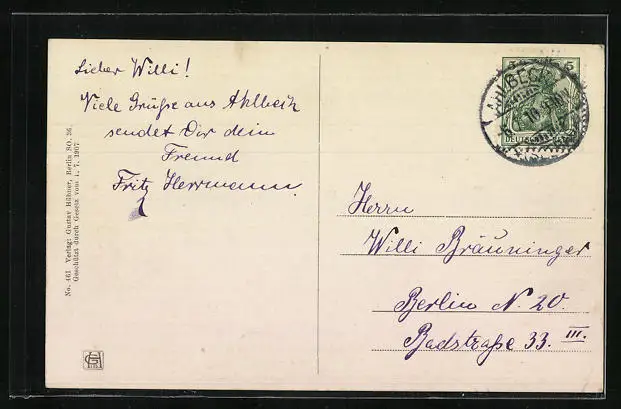 Lieber Willi!
Viele Grüße aus Ahlbeck
sendet Dir dein
Freund
Fritz Herrmann.
Herrn
Willi Bräuninger
Berlin N. 20.
Badstraße 33. III.
No. 461 Verlag: Gustav Hübner, Berlin SO. 36.
Geschützt durch Gesetz vom 1. 7. 1907
5 5
AHLBECK
DEUTSCHES REICH